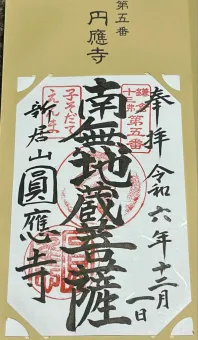 第五番
円應寺
奉拝
令和六年十二月一日
鎌倉
十三佛
第五番
南無地蔵菩薩
子そだて
えんま
新居山
圓應寺